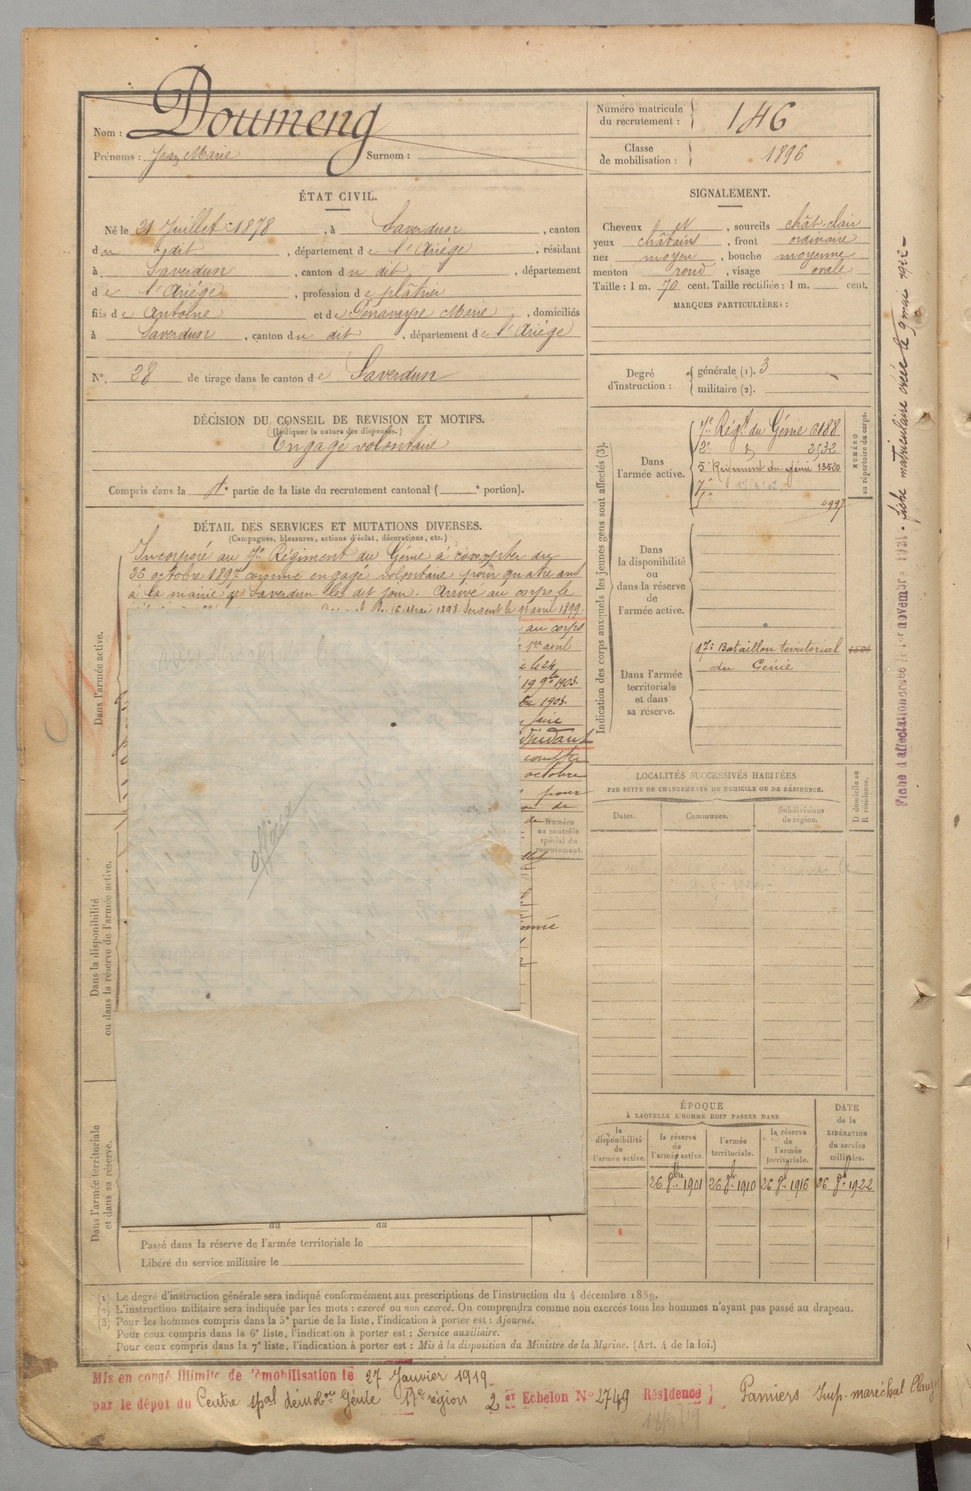 Nom : Doumeng
Prénoms : Jean Marie Surnom :
Numéro matricule du recrutement : 146
Classe de mobilisation : 1896
ÉTAT CIVIL.
Né le 21 Juillet 1878, à Saverdun, canton
du dit, département de l'Ariége, résidant
à Saverdun, canton du dit, département
de l'Ariége, profession de plâtrier
fils de Antoine et de Génavayre Marie, domiciliés
à Saverdun, canton du dit, département de l'Ariége
N°. 28 de tirage dans le canton de Saverdun
SIGNALEMENT.
Cheveux id, sourcils chât-clair
yeux châtains, front ordinaire
nez moyen, bouche moyenne
menton rond, visage ovale
Taille : 1 m. 70 cent. Taille rectifiée : 1 m. cent.
MARQUES PARTICULIÈRES :
Degré d'instruction : générale (1). 3
militaire (2).
DÉCISION DU CONSEIL DE REVISION ET MOTIFS.
(Indiquer la nature des dispenses.)
Engagé volontaire
Compris dans la partie de la liste du recrutement cantonal ( portion).
DÉTAIL DES SERVICES ET MUTATIONS DIVERSES.
(Campagnes, blessures, actions d'éclat, décorations, etc.)
Incorporé au Régiment du Génie à compter du
26 octobre 1897 comme engagé volontaire pour quatre ans
à la mairie de Saverdun le dit jour. Arrivé au corps le
16 Mai 1898 Sergent le 11 avril 1899.
au corps
1er avril
1903.
1903.
octobre
pour
de
Dans l'armée active.
Dans la disponibilité ou dans la réserve de l'armée active.
Dans l'armée territoriale et dans sa réserve.
Numéro au contrôle spécial du recrutement.
officier
Indication des corps auxquels les jeunes gens sont affectés (3).
NUMÉRO au répertoire du corps.
Dans l'armée active.
7e Régt du Génie 6188
2e d 2532
5 Régiment du génie 13520
7e
1e 0997
Dans la disponibilité ou dans la réserve de l'armée active.
Dans l'armée territoriale et dans sa réserve.
17e Bataillon territorial
du Génie
LOCALITÉS SUCCESSIVES HABITÉES
PAR SUITE DE CHANGEMENTS DE DOMICILE OU DE RÉSIDENCE.
Dates. Communes. Subdivisions de région. D domicile ou R résidence.
ÉPOQUE
À LAQUELLE L'HOMME DOIT PASSER DANS
la disponibilité de l'armée active. la réserve de l'armée active. l'armée territoriale. la réserve de l'armée territoriale.
DATE de la LIBÉRATION du service militaire.
26 8bre 1901 26 8bre 1910 26 8bre 1916 26 8bre 1922
du au
Passé dans la réserve de l'armée territoriale le
Libéré du service militaire le
(1) Le degré d'instruction générale sera indiqué conformément aux prescriptions de l'instruction du 4 décembre 1889.
(2) L'instruction militaire sera indiquée par les mots : exercé ou non exercé. On comprendra comme non exercés tous les hommes n'ayant pas passé au drapeau.
(3) Pour les hommes compris dans la 5e partie de la liste, l'indication à porter est : Ajourné.
Pour ceux compris dans la 6e liste, l'indication à porter est : Service auxiliaire.
Pour ceux compris dans la 7e liste, l'indication à porter est : Mis à la disposition du Ministre de la Marine. (Art. 4 de la loi.)
Mis en congé illimité de démobilisation le 27 Janvier 1919
par le dépôt du Centre spal démobon Génie 17e région 2 er Echelon N° 2749 Résidence } Pamiers Imp. maréchal Clauzel
Fiche d'affectation créée le 1er novembre 1921. fiche matriculaire créée le 9 mai 1922